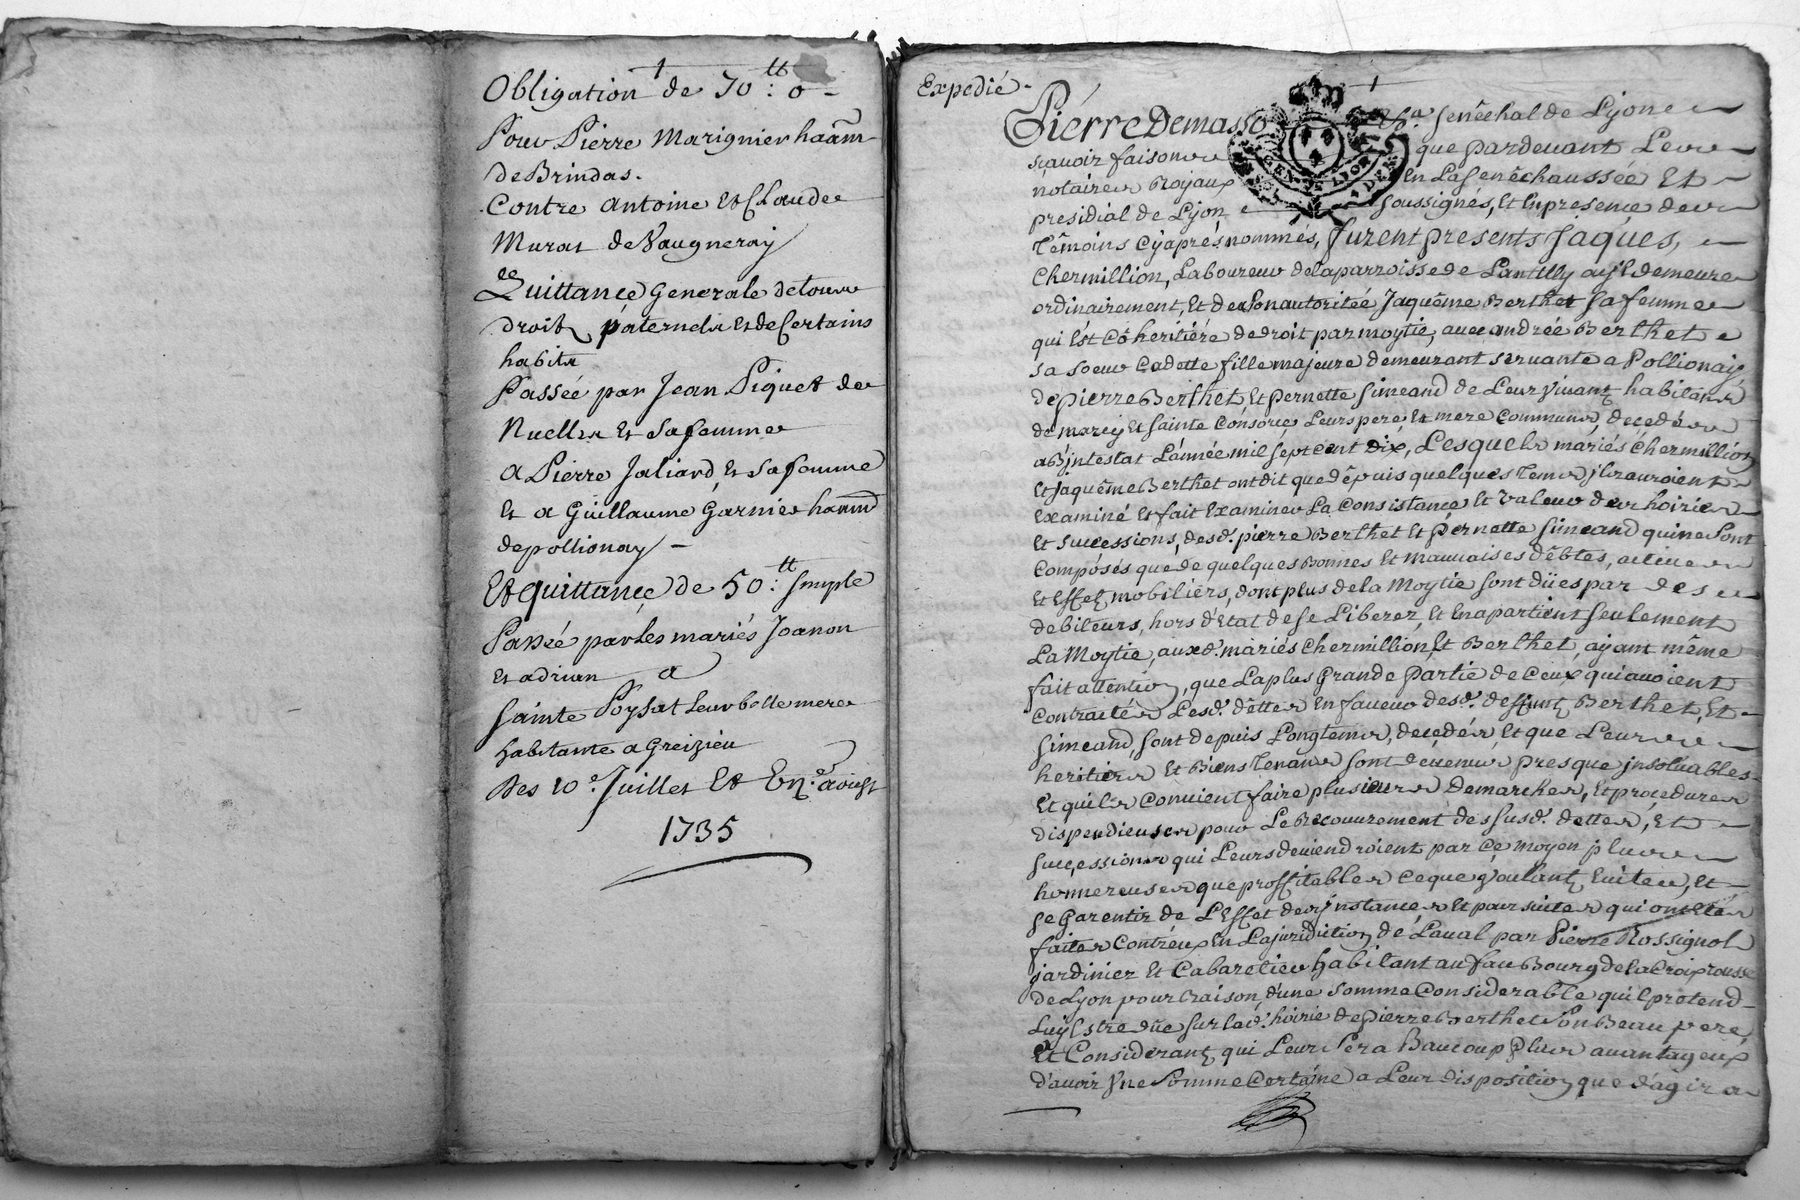 Obligation de 70.tt 0 -
Pour Pierre Marignier haánt
de Brindas.
Contre antoine Et Claude
Murat de Vaugneray
Quittance Generale de tous
droits paternels Et de Certains
habits
Passée par Jean Piquet de
Nuelles Et Sa femme
A Pierre Jaliard Et Sa femme
Et a Guillaume Garnier haánt
de pollionay -
Et quittance de 50.tt simple
Passée par Les mariés Joanon
Et adrian a
Sainte Poysat Leur belle mere
habitante a Greizieu
Des 10.e Juillet Et aoust
1735
Expedié.
Pierre Demasso Senéchal de Lyon
sçavoir faisons que pardevant Les
notaires Royaux En La Senéchaussée Et
presidial de Lyon soussignés, Et En presence des
Témoins Cyaprés nommés, furent presents Jaques,
Chermillion, Laboureur de la parroisse de Lantilly ou jl demeure
ordinairement, Et de son autoritée Jaquême Berthet sa femme
qui Est Cóheritiére de droit par moytie, avec andrée Berthet
sa soeur Cadette fille majeure demeurant servante a Pollionay
de pierre Berthet, Et pernette Simeand de Leur vivant habitans
de marcy Et Sainte Consorce Leurs pere, Et mere Communs, decedés
aBjntestat L'année mil sept Cent Dix, Lesquels mariés Chermillion
Et Jaquême Berthet ont dit que dépuis quelques Tems jls auroient
Examiné Et fait Examiner La Consistance Et valeur des hoiries
Et Successions, des d. pierre Berthet Et Pernette Simeand qui ne Sont
Composés que de quelques Bonnes Et mauvaises dêbtes, actives
Et Effets mobiliers, dont plus de la Moytie sont dües par des
debiteurs, hors d'Etat de se Liberer, Et En apartient seulement
La Moytie, aux d. mariés Chermillion, Et Berthet, ayant même
fait attention, que La plus Grande Partie de Ceux qui avoient
Contractés Les d. dêttes En faveur des d. deffunts Berthet, Et
Simeand, sont depuis Longtems, decedés, Et que Leurs
heritiers Et Biens Tenans sont devenus presque jnsoluables
Et qu'il Convient faire plusieurs Demarches, Et procedures
dispendieuses pour Le Recouvrement des susd. dettes, Et
successions qui Leurs deviendroient par Ce moyen plus
honnereuses que proffitables Ce que voulant Eviter, Et
se Garentir de L'Effet des jnstances Et poursuites qui ont Etés
faites Contréux En La juridiction de Laval par Pierre Rossignol
jardinier Et Cabaretier habitant au fauBourg de la Croixrousse
de Lyon pour Raison, d'une somme Considerable qu'il pretend
Luy Estre düe sur la d. hoirie de pierre Berthet Son Beau pere,
Et Considerant, qui Leur Sera Baucoup plus avantageux
d'avoir Vne Somme Certaine a Leur disposition que d'agir a